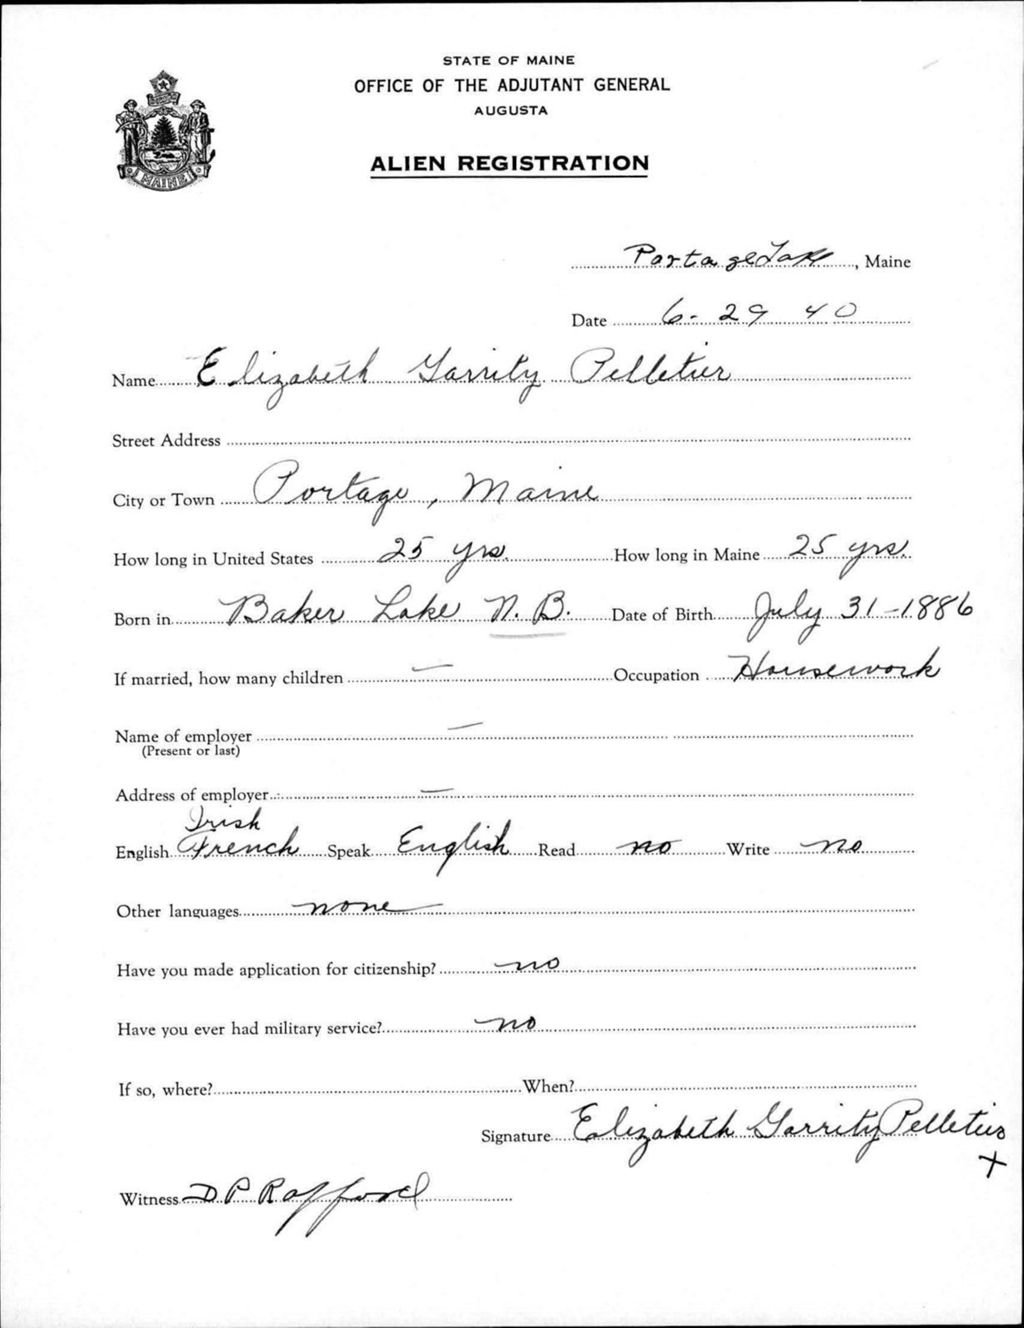 STATE OF MAINE
OFFICE OF THE ADJUTANT GENERAL
AUGUSTA
ALIEN REGISTRATION
MAINE
Portage Lake, Maine
Date 6-29 40
Name Elizabeth Garrity Pelletier
Street Address
City or Town Portage, Maine
How long in United States 25 yrs. How long in Maine 25 yrs.
Born in Baker Lake N. B. Date of Birth July 31-1886
If married, how many children — Occupation Housework
Name of employer —
(Present or last)
Address of employer —
Irish
English French Speak English Read no Write no
Other languages none
Have you made application for citizenship? no
Have you ever had military service? no
If so, where? When?
Signature Elizabeth Garrity Pelletier
X
Witness D P Rafford